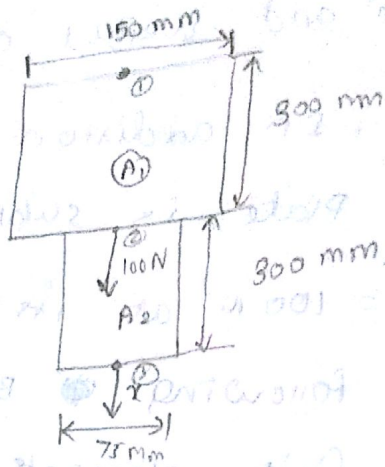 150 mm
①
300 mm
A₁
②
100N
300 mm
A2
③
x
75 mm